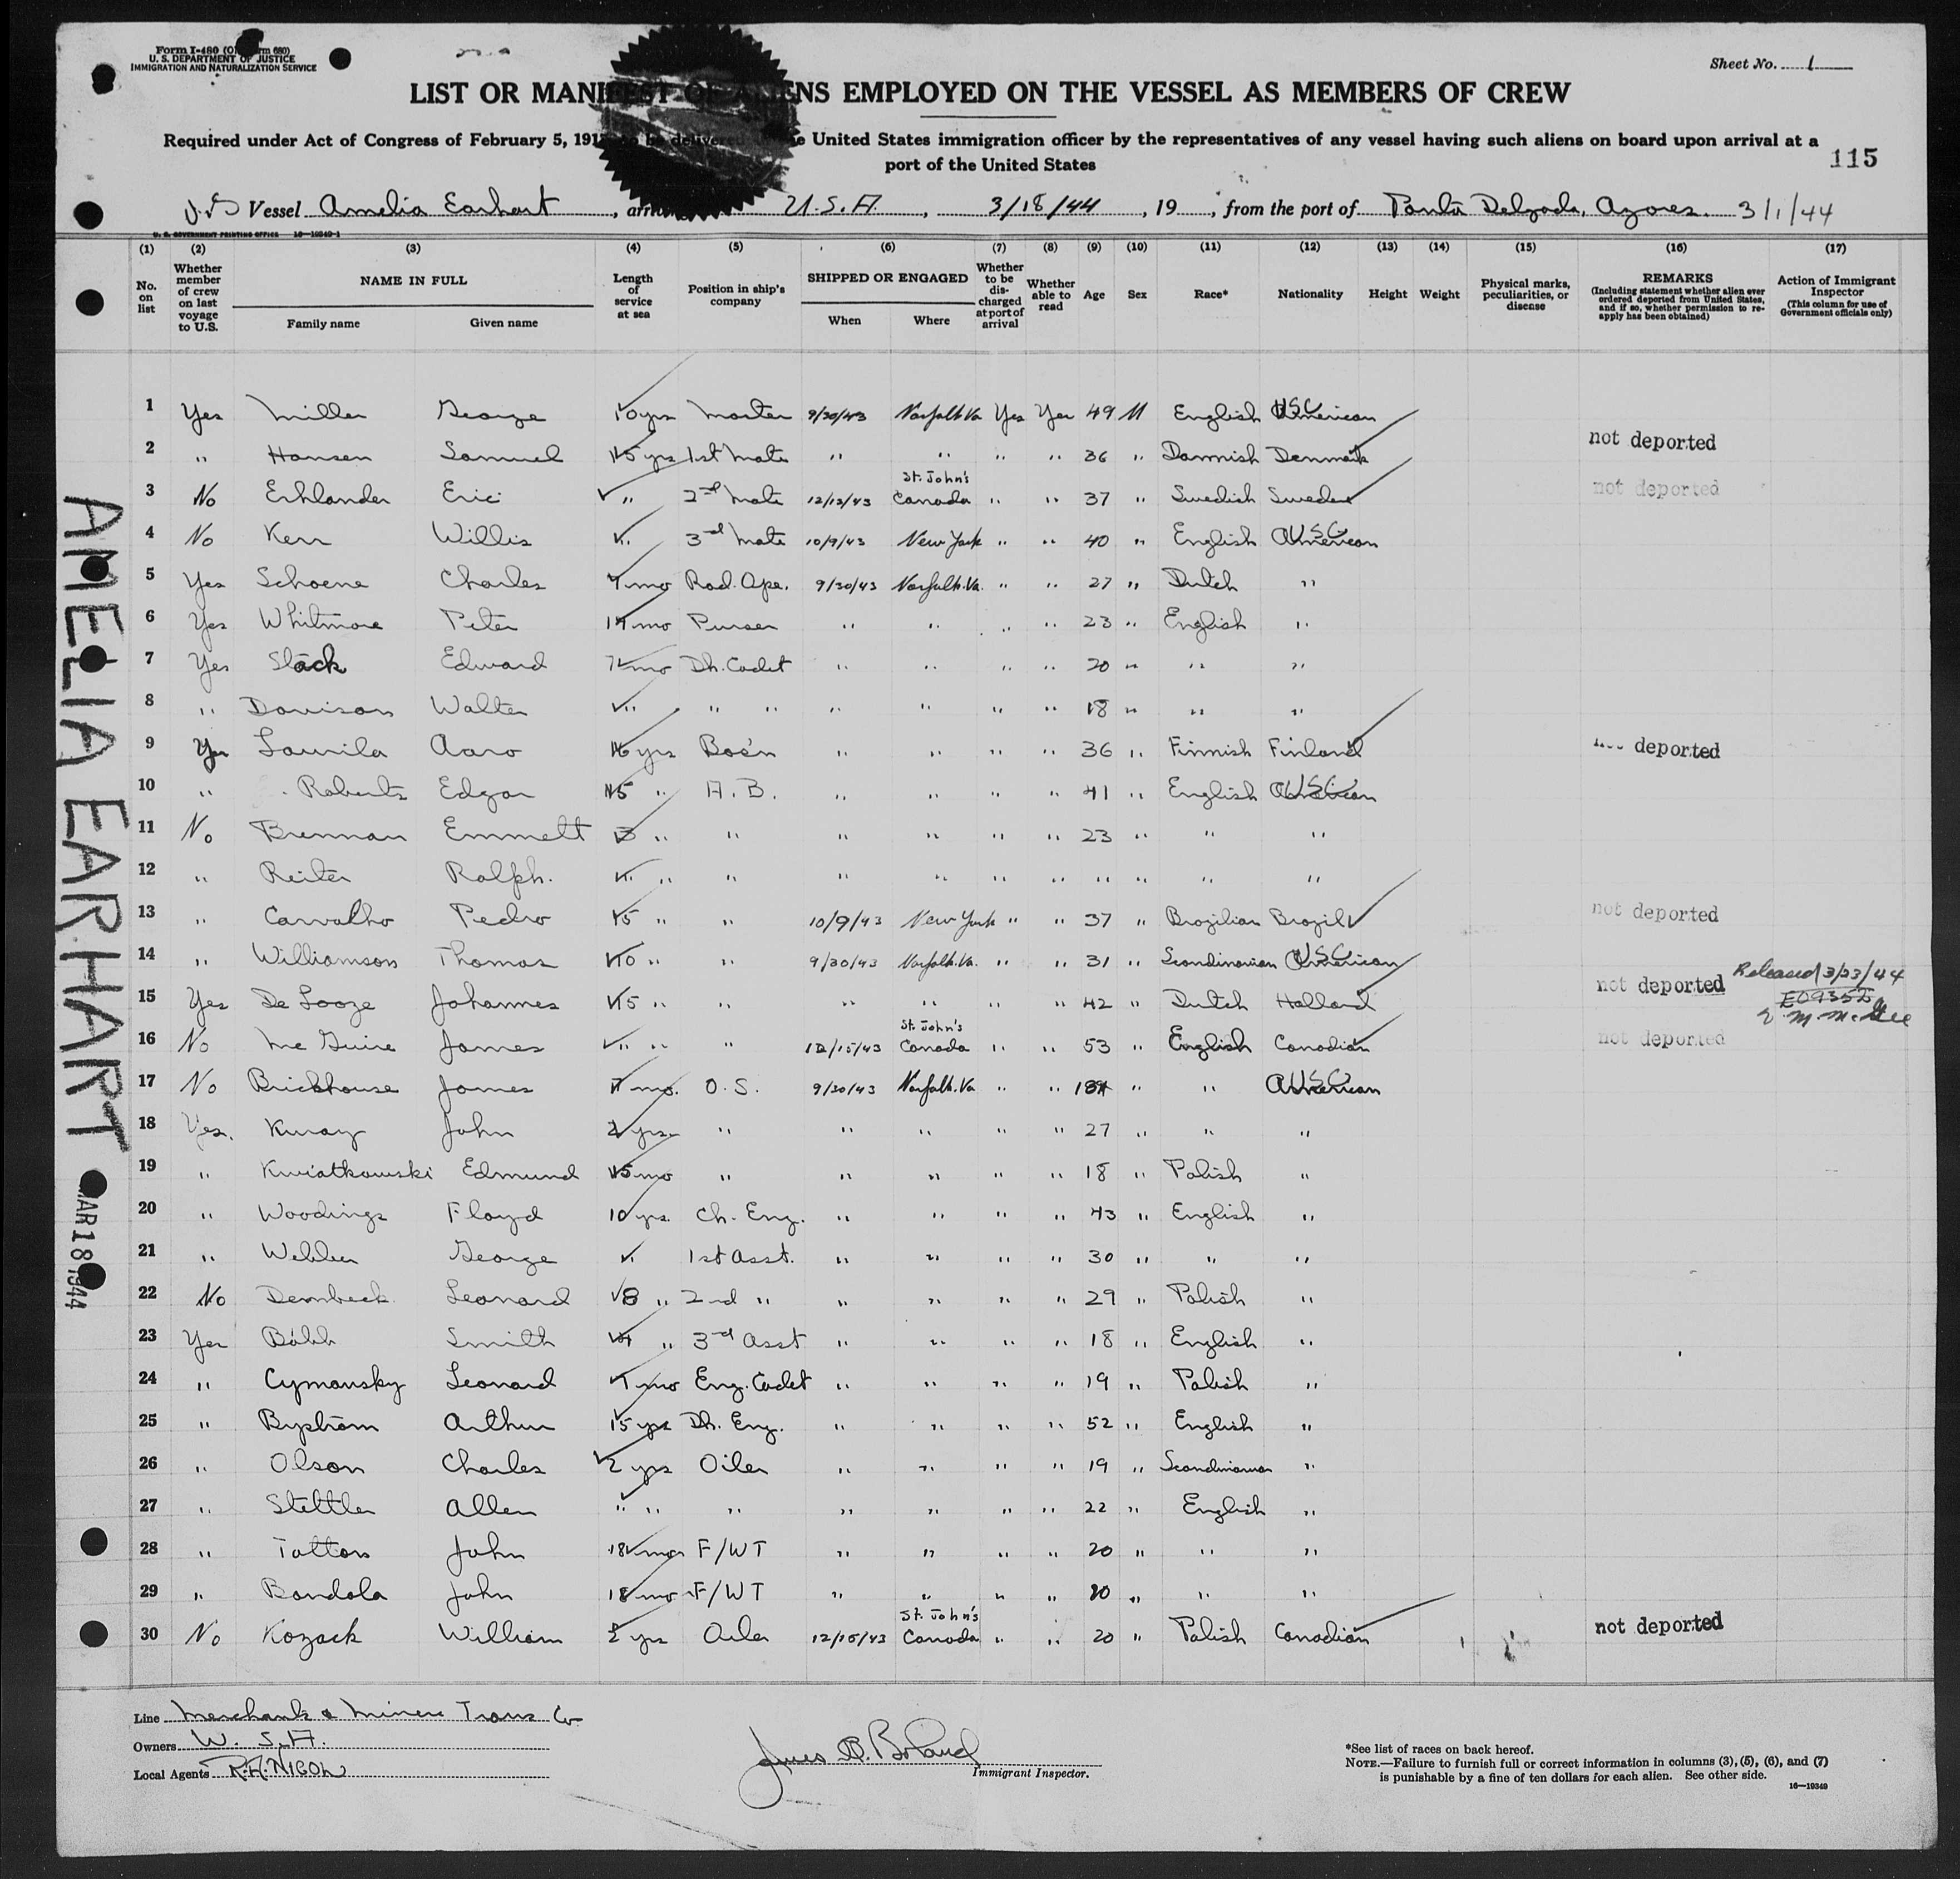 Form I-480
U. S. DEPARTMENT OF JUSTICE
IMMIGRATION AND NATURALIZATION SERVICE
Sheet No. 1
LIST OR MANIFEST OF ALIENS EMPLOYED ON THE VESSEL AS MEMBERS OF CREW
Required under Act of Congress of February 5, 191 to be delivered United States immigration officer by the representatives of any vessel having such aliens on board upon arrival at a
port of the United States
115
Vessel Amelia Earhart, U.S.A., 3/18/44, 19, from the port of Ponta Delgada, Azores. 3/1/44
U. S. GOVERNMENT PRINTING OFFICE 16—19349-1
(1) (2) (3) (4) (5) (6) (7) (8) (9) (10) (11) (12) (13) (14) (15) (16) (17)
No. on list
Whether member of crew on last voyage to U.S.
NAME IN FULL
Family name Given name
Length of service at sea
Position in ship's company
SHIPPED OR ENGAGED
When Where
Whether to be discharged at port of arrival
Whether able to read
Age
Sex
Race*
Nationality
Height
Weight
Physical marks, peculiarities, or disease
REMARKS
(Including statement whether alien ever ordered deported from United States, and if so, whether permission to reapply has been obtained)
Action of Immigrant Inspector
(This column for use of Government officials only)
1 Yes Miller George 10 yrs Master 9/30/43 Norfolk Va Yes Yes 49 M English American USC
2 " Hansen Samuel 15 yrs 1st Mate " " " " 36 " Dannish Denmark not deported
3 No Erhlander Eric " 2nd Mate 12/13/43 St. John's Canada " " 37 " Swedish Sweden not deported
4 No Kerr Willis " 3rd Mate 10/9/43 New York " " 40 " English American USC
5 Yes Schoene Charles mo Rad. Ope. 9/30/43 Norfolk. Va. " " 27 " Dutch "
6 Yes Whitmore Peter mo Purser " " " " 23 " English "
7 Yes Slack Edward mo Dk. Cadet " " " " 20 " " "
8 " Davison Walter " " " " " " " 18 " " "
9 Yes Laurila Aaro 16 yrs Bos'n " " " " 36 " Finnish Finland not deported
10 " Roberts Edgar 15 " A.B. " " " " 41 " English American USC
11 No Brennan Emmett " " " " " " 23 " " "
12 " Reiter Ralph. " " " " " " " " " " "
13 " Carvalho Pedro 15 " " 10/9/43 New York " " 37 " Brazilian Brazil not deported
14 " Williamson Thomas 10 " " 9/30/43 Norfolk. Va. " " 31 " Scandinavian American USC
15 Yes De Looze Johannes 15 " " " " " " 42 " Dutch Holland not deported Released 3/23/44
E09352
E. M. McGee
16 No Mc Guire James " " " 12/15/43 St. John's Canada " " 53 " English Canadian not deported
17 No Brickhouse James mo. O.S. 9/30/43 Norfolk. Va " " 18 " " American USC
18 Yes. Kway John 2 yrs " " " " " 27 " " "
19 " Kwiatkowski Edmund 15 mo " " " " " 18 " Polish "
20 " Woodings Floyd 10 yrs. Ch. Eng. " " " " 43 " English "
21 " Webber George " 1st Asst. " " " " 30 " " "
22 No Dembeck Leonard 8 " 2nd " " " " " 29 " Polish "
23 Yes Babb Smith " 3rd Asst " " " " 18 " English "
24 " Cymansky Leonard mo Eng. Cadet " " " " 19 " Polish "
25 " Bystrom Arthur 15 yrs Dk. Eng. " " " " 52 " English "
26 " Olson Charles 2 yrs Oiler " " " " 19 " Scandinavian "
27 " Stettler Allen " " " " " " " 22 " English "
28 " Totton John 18 mo F/WT " " " " 20 " " "
29 " Bandola John 18 mo F/WT " " " " 20 " " "
30 No Kozack William 2 yrs Oiler 12/15/43 St. John's Canada " " 20 " Polish Canadian not deported
AMELIA EARHART
MAR 18 1944
Line Merchants & Miners Trans Co
Owners W. S. A.
Local Agents R.A. NICOL
James B. Boland
Immigrant Inspector.
*See list of races on back hereof.
NOTE.—Failure to furnish full or correct information in columns (3), (5), (6), and (7)
is punishable by a fine of ten dollars for each alien. See other side.
16—19349